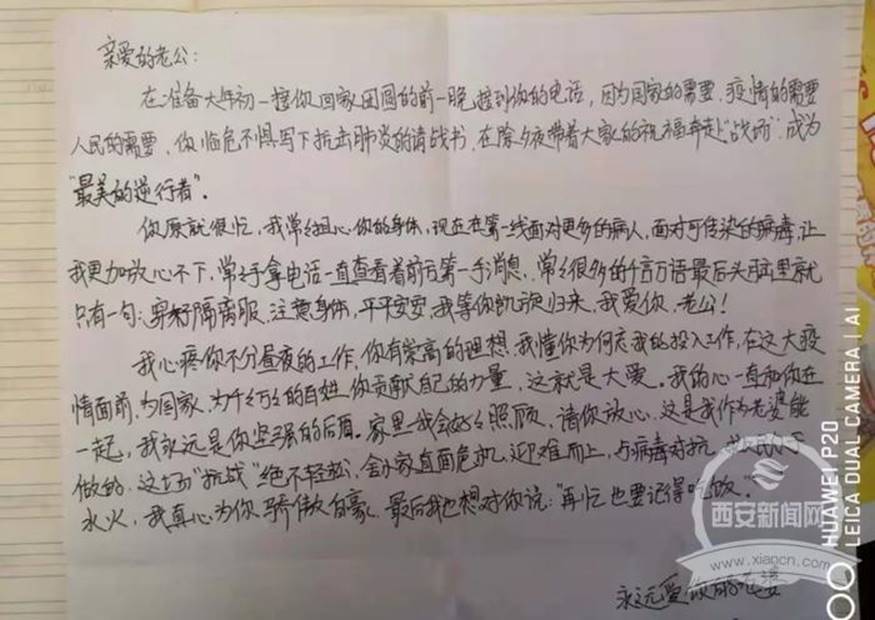 亲爱的老公:
在准备大年初一接你回家团圆的前一晚接到你的电话,因为国家的需要,疫情的需要
人民的需要,你临危不惧写下抗击肺炎的请战书,在除夕夜带着大家的祝福奔赴“战场”,成为
“最美的逆行者”。
你原就很忙,我常担心你的身体,现在在第一线面对更多的病人,面对可传染的病毒,让
我更加放心不下,常常手拿电话一直查看着前方第一手消息,常常很多的千言万语最后头脑里就
只有一句:穿好隔离服,注意身体,平平安安,我等你凯旋归来,我爱你,老公!
我心疼你不分昼夜的工作,你有崇高的理想,我懂你为何忘我的投入工作,在这大疫
情面前,为国家,为千千万万的百姓你贡献自己的力量,这就是大爱。我的心一直和你在
一起,我永远是你坚强的后盾。家里我会好好照顾,请你放心,这是我作为老婆能
做的,这场“抗战”绝不轻松,舍小家直面危机,迎难而上,与病毒对抗,救人民于
水火,我真心为你骄傲自豪,最后我也想对你说:“再忙也要记得吃饭。”
永远爱你的老婆
西安新闻网
www.xiancn.com
HUAWEI P20
LEICA DUAL CAMERA | AI